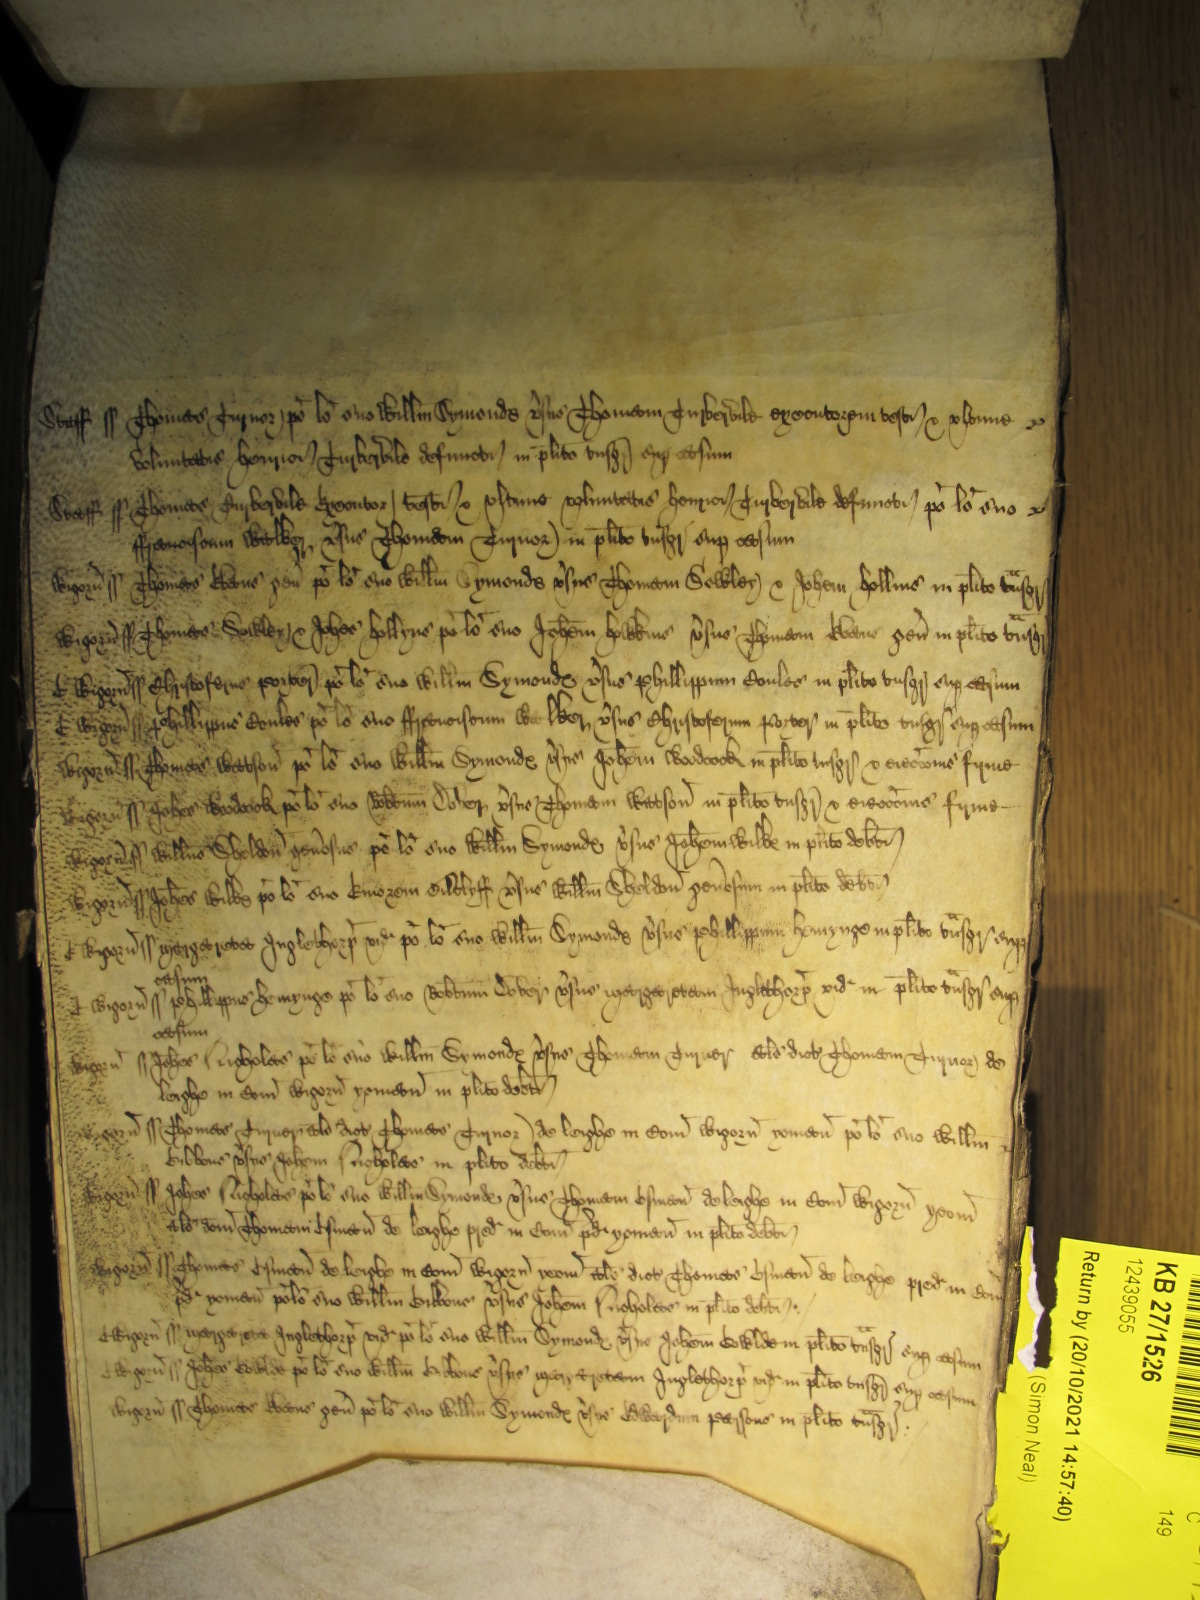 Staff ss Thomas Turnor po lo suo Willm Symonds vsus Thomam Turbervile executorem testi & ultime
voluntatis Henrici Turbervile defuncti in plito tnsgr sup casum
Staff ss Thomas Turbervile executor testi & ultime voluntatis Henrici Turbervile defuncti po lo suo
ffranciscum Walker vsus Thomam Turnor in plito tnsgr sup casum
Wigorn ss Thomas Evans gen po lo suo Willm Symonds vsus Thomam Sekley & Johem Hollins in plito tnsgr
Wigorn ss Thomas Seckley & Johes Hollyns po lo suo Johem Hikkins vsus Thomam Evans gen in plito tnsgr
E Wigorn ss Christoferus Porter po lo suo Willm Symonds vsus Phillippum Coules in plito tnsgr sup casum
E Wigorn ss Phillippus Coules po lo suo ffranciscum Walker vsus Christoferum Porter in plito tnsgr sup casum
Wigorn ss Thomas Watson po lo suo Willm Symonds vsus Johem Woodcock in plito tnsgr & eieccois firme
Wigorn ss Johes Woodcock po lo suo Robtum Dover vsus Thomam Watson in plito tnsgr & eieccois firme
Wigorn ss Willus Sheldon genosus po lo suo Willm Symonds vsus Johem Wilks in plito debti
Wigorn ss Johes Wilks po lo suo vsus Willm Sheldon genosum in plito debti
E Wigorn ss Margareta Inglethorp vid po lo suo Willm Symonds vsus Phillippum Hemynge in plito tnsgr sup
casum
E Wigorn ss Phillippus Hemynge po lo suo Robtum Dover vsus Margaretam Inglethorp vid in plito tnsgr sup
casum
Wigorn ss Johes Nicholas po lo suo Willm Symonds vsus Thomam Turner als dict Thomam Turnor de
Leighe in Com Wigorn yoman in plito debti
Wigorn ss Thomas Turner als dict Thomas Turnor de Leighe in Com Wigorn yoman po lo suo Willm
Gibbons vsus Johem Nicholas in plito debti
Wigorn ss Johes Nicholas po lo suo Willm Symonds vsus Thomam de Leighe in Com Wigorn yeom
als dem Thomam de Leighe pred in Com pd yoman in plito debti
Wigorn ss Thomas de Leighe in Com Wigorn yeom als dict Thomas de Leighe pred in Com
pd yoman po lo suo Willm Gibbons vsus Johem Nicholas in plito debti
E Wigorn ss Margareta Inglethorp vid po lo suo Willm Symonds vsus Johem Cowlds in plito tnsgr sup casum
E Wigorn ss Johes Cowlds po lo suo Willm Gibbons vsus Margaretam Inglethorp vid in plito tnsgr sup casum
Wigorn ss Thomas Evans gen po lo suo Willm Symonds vsus Edwardum Parsons in plito tnsgr
KB 27/1526
12439055
149
Return by (20/10/2021 14:57:40)
(Simon Neal)